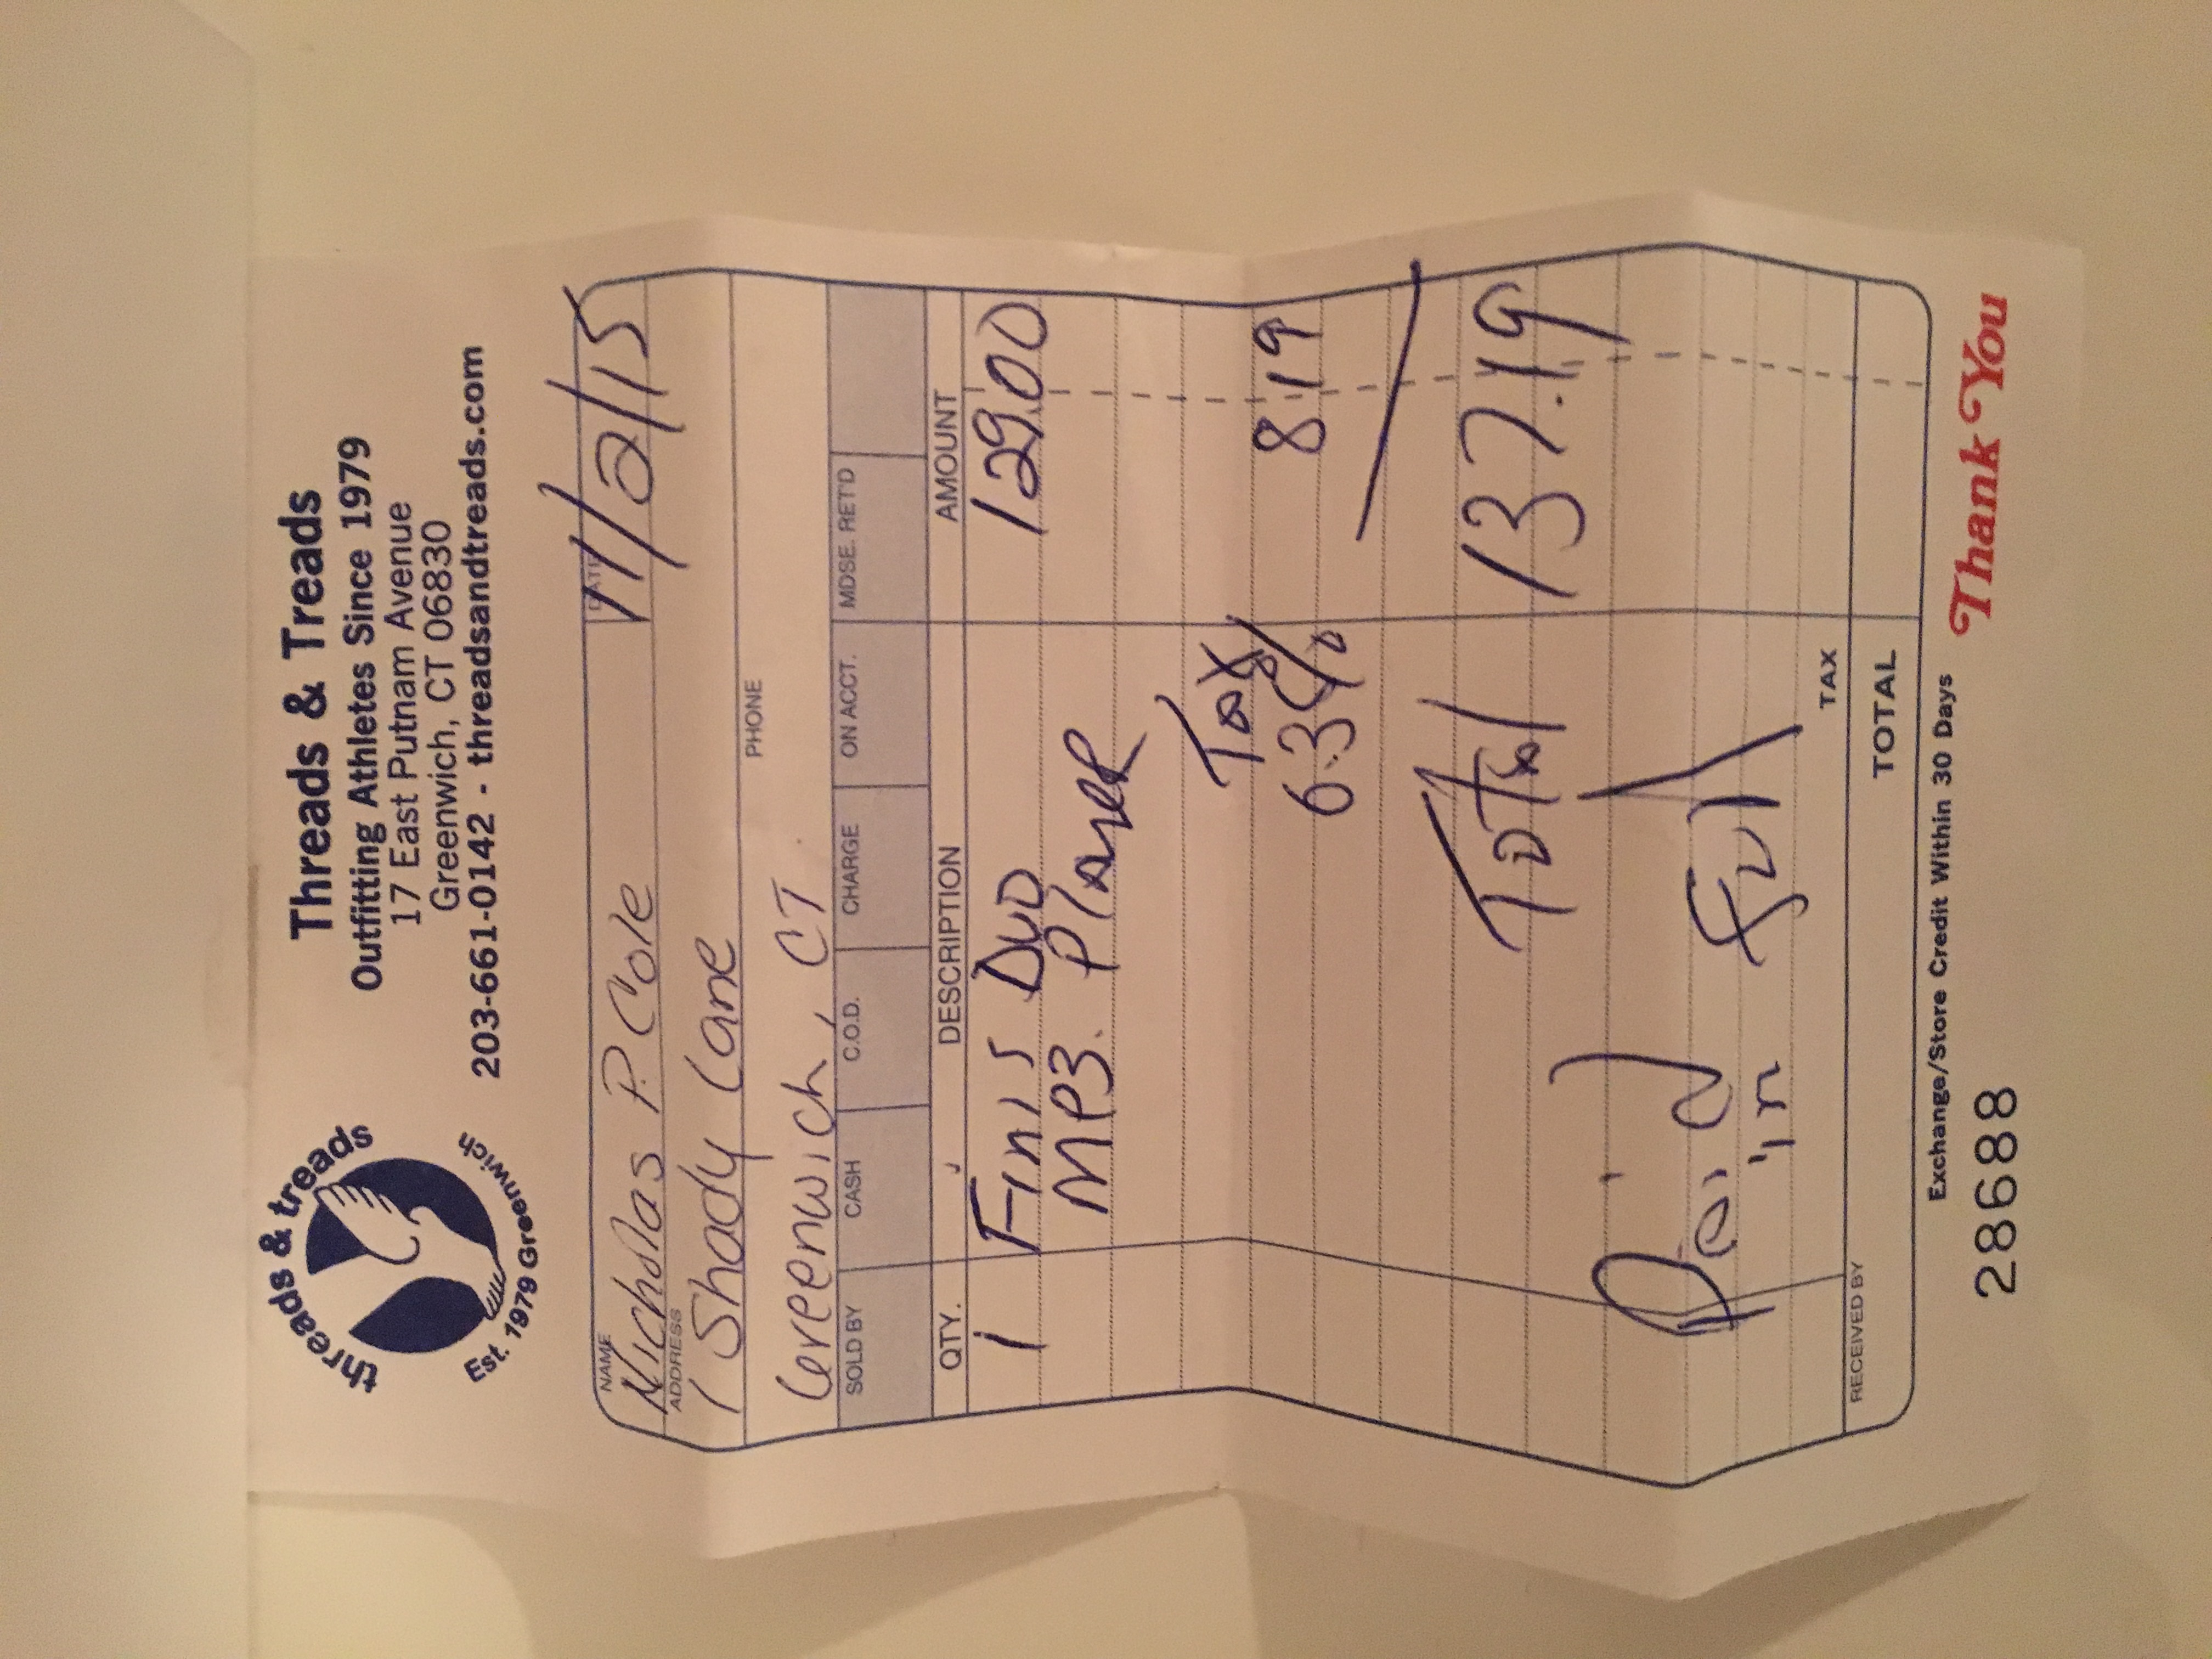 threads & treads
est. 1979 Greenwich
Threads & Treads
Outfitting Athletes Since 1979
17 East Putnam Avenue
Greenwich, CT 06830
203-661-0142 - threadsandtreads.com
NAME DATE
Nicholas P. Cole 11/21/15
ADDRESS
1 Shady Lane
PHONE
Greenwich, CT.
SOLD BY CASH C.O.D. CHARGE ON ACCT. MDSE. RET'D
QTY. DESCRIPTION AMOUNT
1 Finis Duo 129.00
MP3. Player
Tax
6.35% 8.19
Total 137.19
Paid
in full
TAX
RECEIVED BY
TOTAL
Exchange/Store Credit Within 30 Days
28688 Thank You